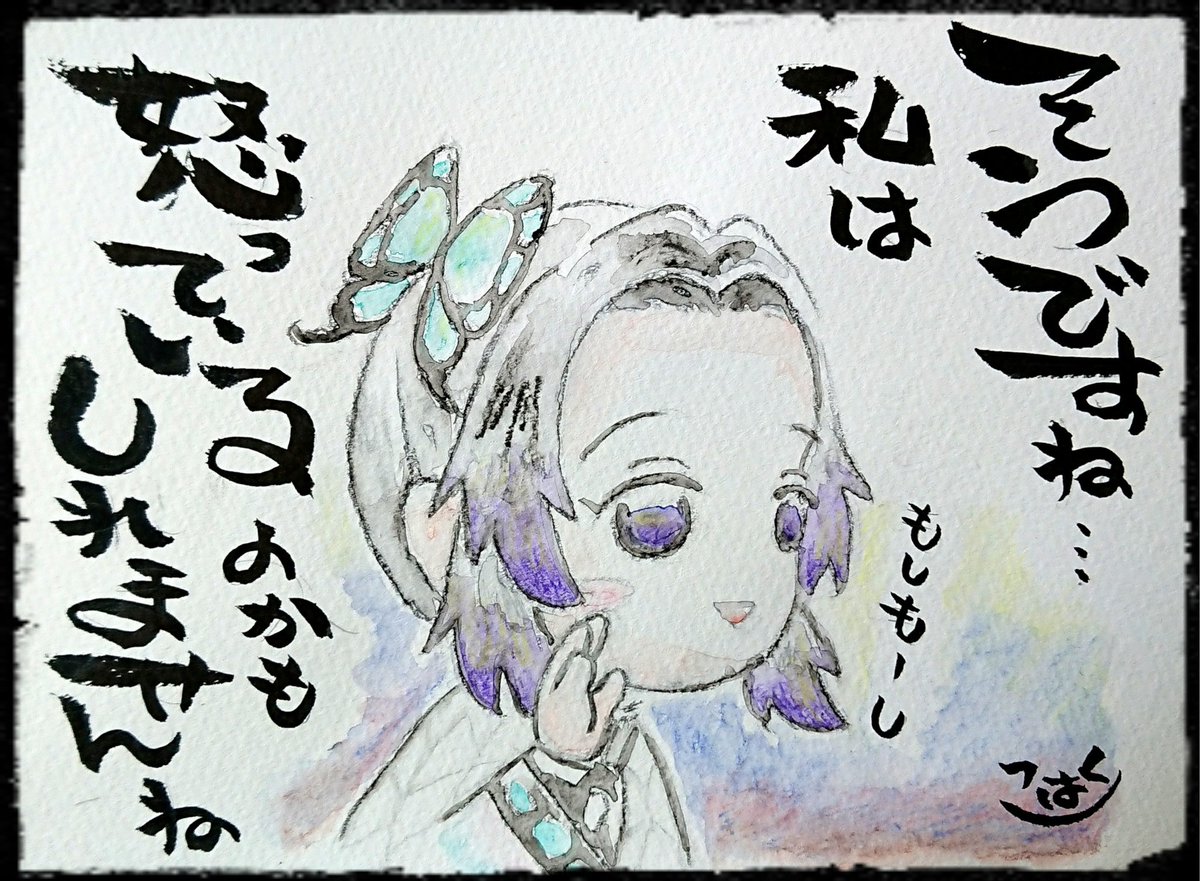 そうですね…
私は
怒っている
のかも
しれませんね
もしもーし
つはく